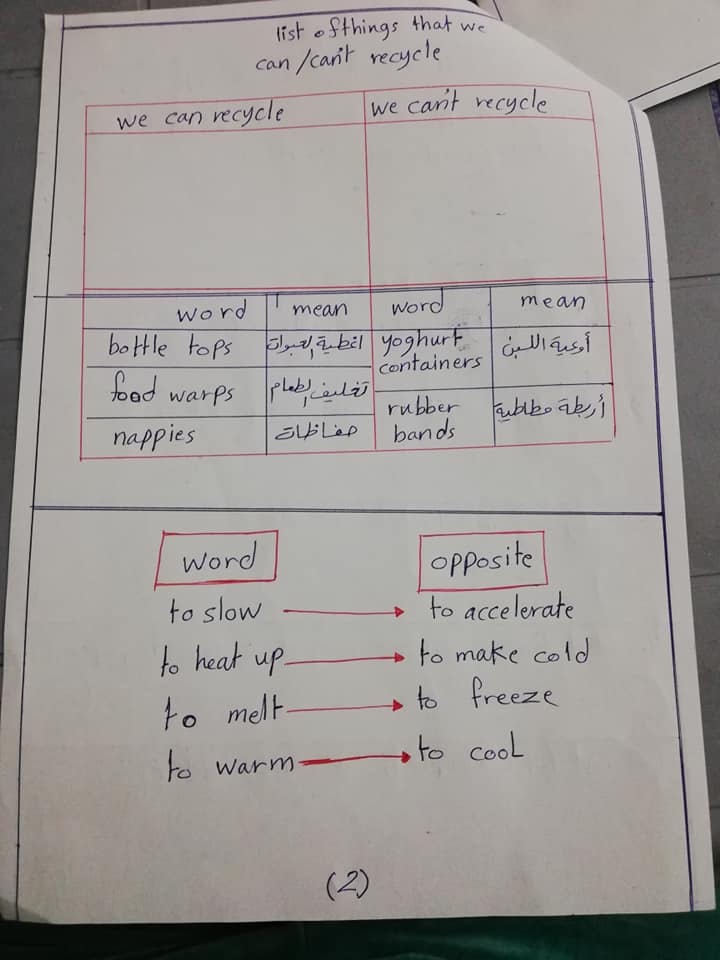 list of things that we
can /can't recycle
we can recycle we can't recycle
word mean word mean
bottle tops اغطية العبوات yoghurt containers أوعية اللبن
food warps تغليف الطعام rubber bands أربطة مطاطية
nappies حفاظات
word opposite
to slow to accelerate
to heat up to make cold
to melt to freeze
to warm to cool
(2)